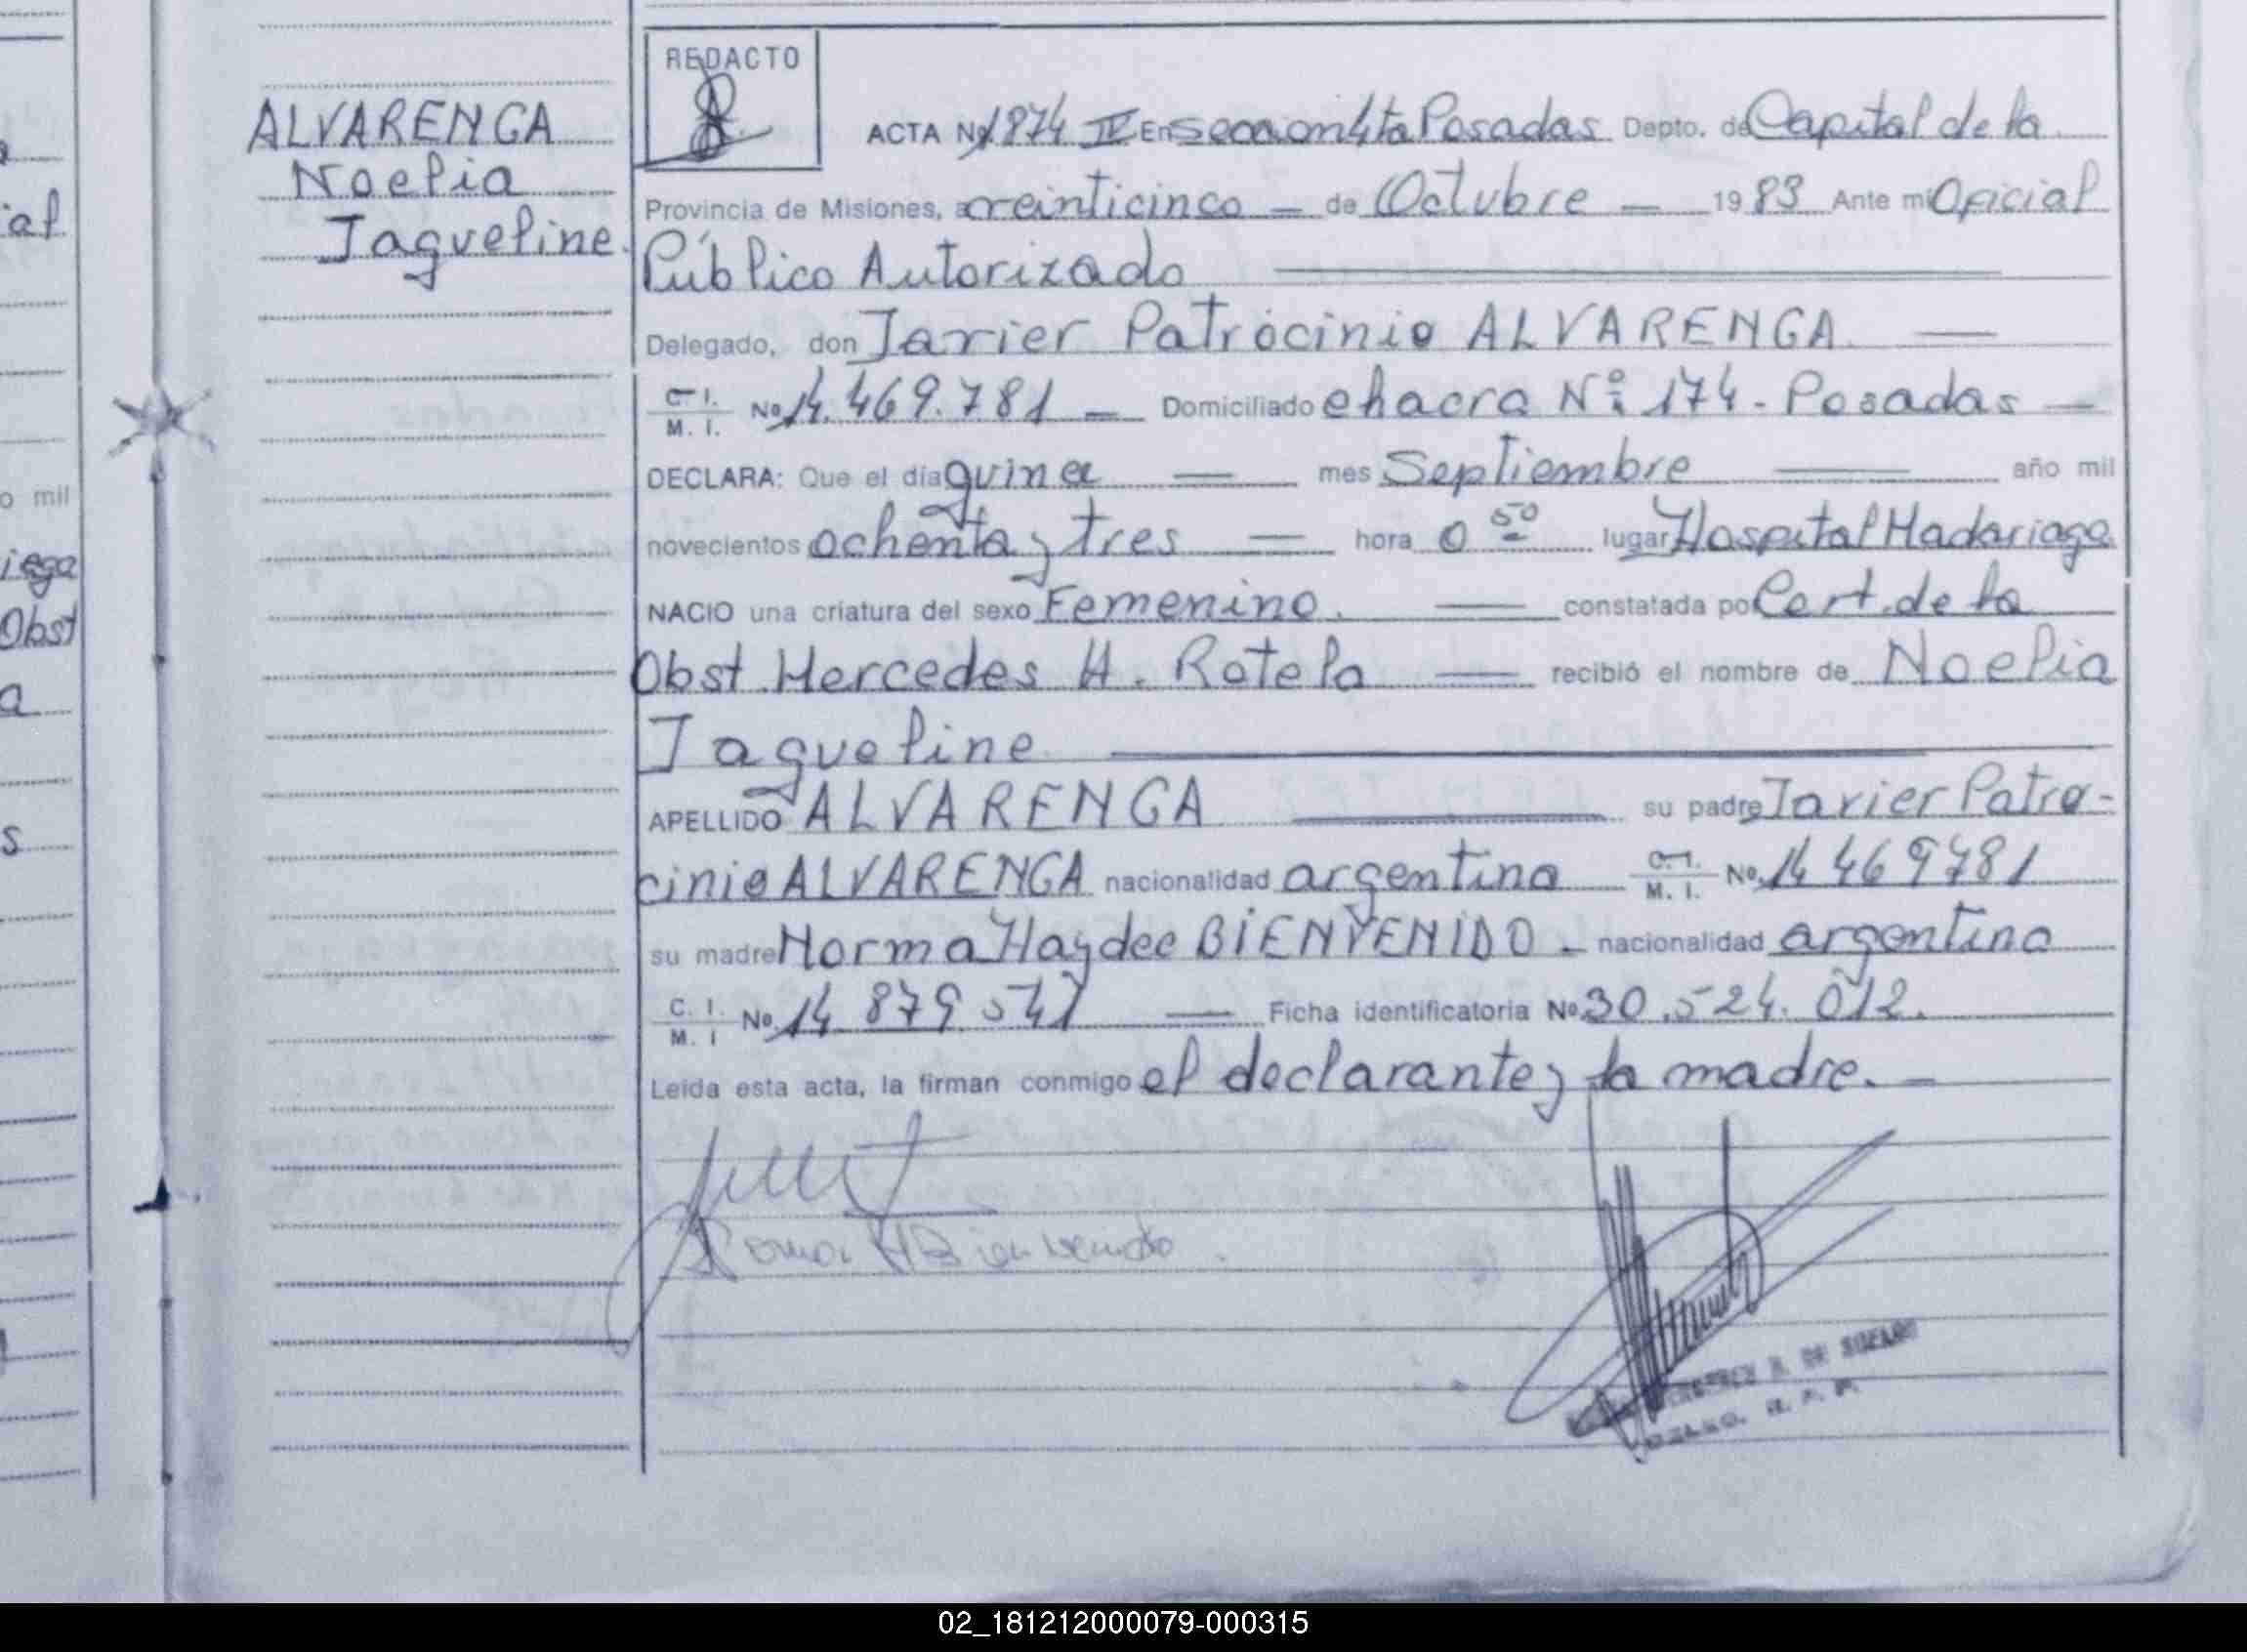 ALVARENGA
Noelia
Jaqueline.
REDACTO
ACTA Nº 1874 IV En seccion 4ta Posadas Depto. de Capital de la
Provincia de Misiones, a veinticinco — de Octubre — 1983 Ante mi Oficial
Público Autorizado
Delegado, don Javier Patrocinio ALVARENGA —
C. I. / M. I. Nº 14.469.781 — Domiciliado chacra Nº 174 - Posadas —
DECLARA: Que el día quince — mes Septiembre — año mil
novecientos ochenta y tres — hora 0 50 lugar Hospital Madariaga
NACIO una criatura del sexo Femenino. — constatada por Cert. de la
Obst. Mercedes M. Rotela — recibió el nombre de Noelia
Jaqueline
APELLIDO ALVARENGA — su padre Javier Patro-
cinio ALVARENGA nacionalidad argentina C. I. / M. I. Nº 14 469781
su madre Norma Haydee BIENVENIDO - nacionalidad argentina
C. I. / M. I Nº 14 879 547 — Ficha identificatoria Nº 30.524.012.
Leída esta acta, la firman conmigo el declarante y la madre. —
Norma H Bienvenido.
02_181212000079-000315